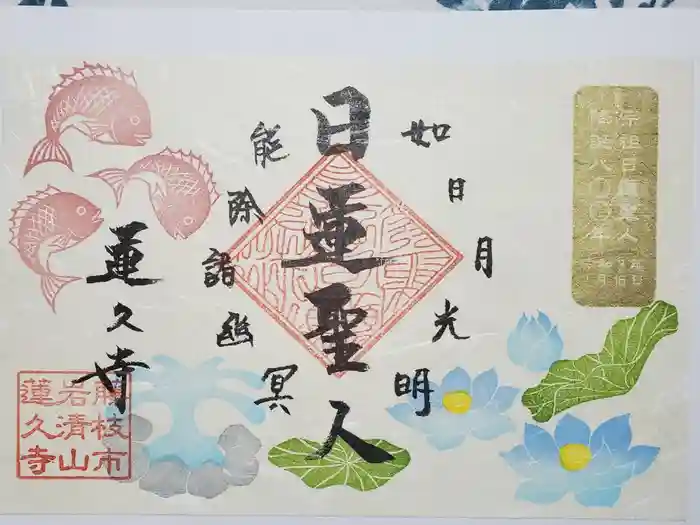 宗祖日蓮聖人
降誕八〇〇年
如日月光明
日蓮聖人
能除諸幽冥
蓮久寺
藤枝市
岩清山
蓮久寺